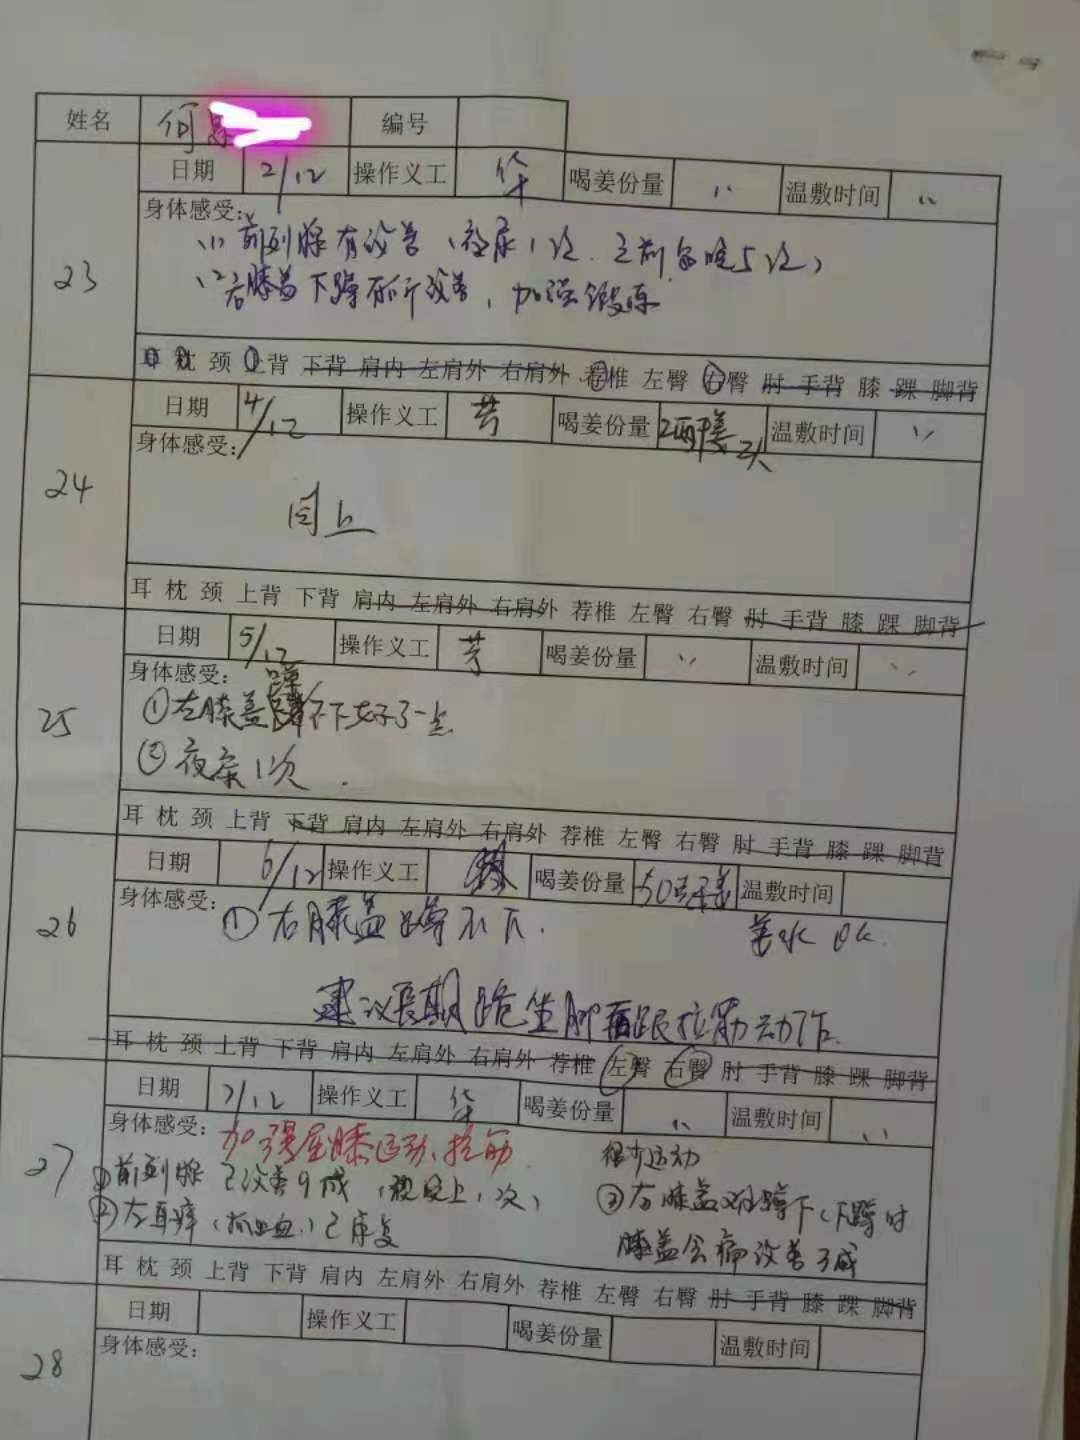 姓名 何 编号
23 日期 2/12 操作义工 华 喝姜份量 〃 温敷时间 〃
身体感受:
(1) 前列腺有改善 (夜尿1次. 之前每晚5次)
(2) 右膝盖下蹲有所改善, 加强锻炼
耳 枕 颈 上背 下背 肩内 左肩外 右肩外 荐椎 左臀 右臀 肘 手背 膝 踝 脚背
24 日期 4/12 操作义工 芳 喝姜份量 2两 温敷时间 〃
身体感受:
同上
耳 枕 颈 上背 下背 肩内 左肩外 右肩外 荐椎 左臀 右臀 肘 手背 膝 踝 脚背
25 日期 5/12 操作义工 芳 喝姜份量 〃 温敷时间 〃
身体感受:
①左膝盖蹲不下好了一点
②夜尿1次.
耳 枕 颈 上背 下背 肩内 左肩外 右肩外 荐椎 左臀 右臀 肘 手背 膝 踝 脚背
26 日期 6/12 操作义工 喝姜份量 50克 温敷时间
身体感受:
①右膝盖蹲不下. 姜水 ok.
建议长期跪坐脚跟拉筋动作.
耳 枕 颈 上背 下背 肩内 左肩外 右肩外 荐椎 左臀 右臀 肘 手背 膝 踝 脚背
27 日期 7/12 操作义工 华 喝姜份量 〃 温敷时间 〃
身体感受: 加强屈膝运动、拉筋. 很少运动
①前列腺已改善9成 (晚上1次) ③右膝盖难蹲下 (下蹲时
②左耳痒 (抓出血) 已康复 膝盖会痛改善3成
耳 枕 颈 上背 下背 肩内 左肩外 右肩外 荐椎 左臀 右臀 肘 手背 膝 踝 脚背
28 日期 操作义工 喝姜份量 温敷时间
身体感受: